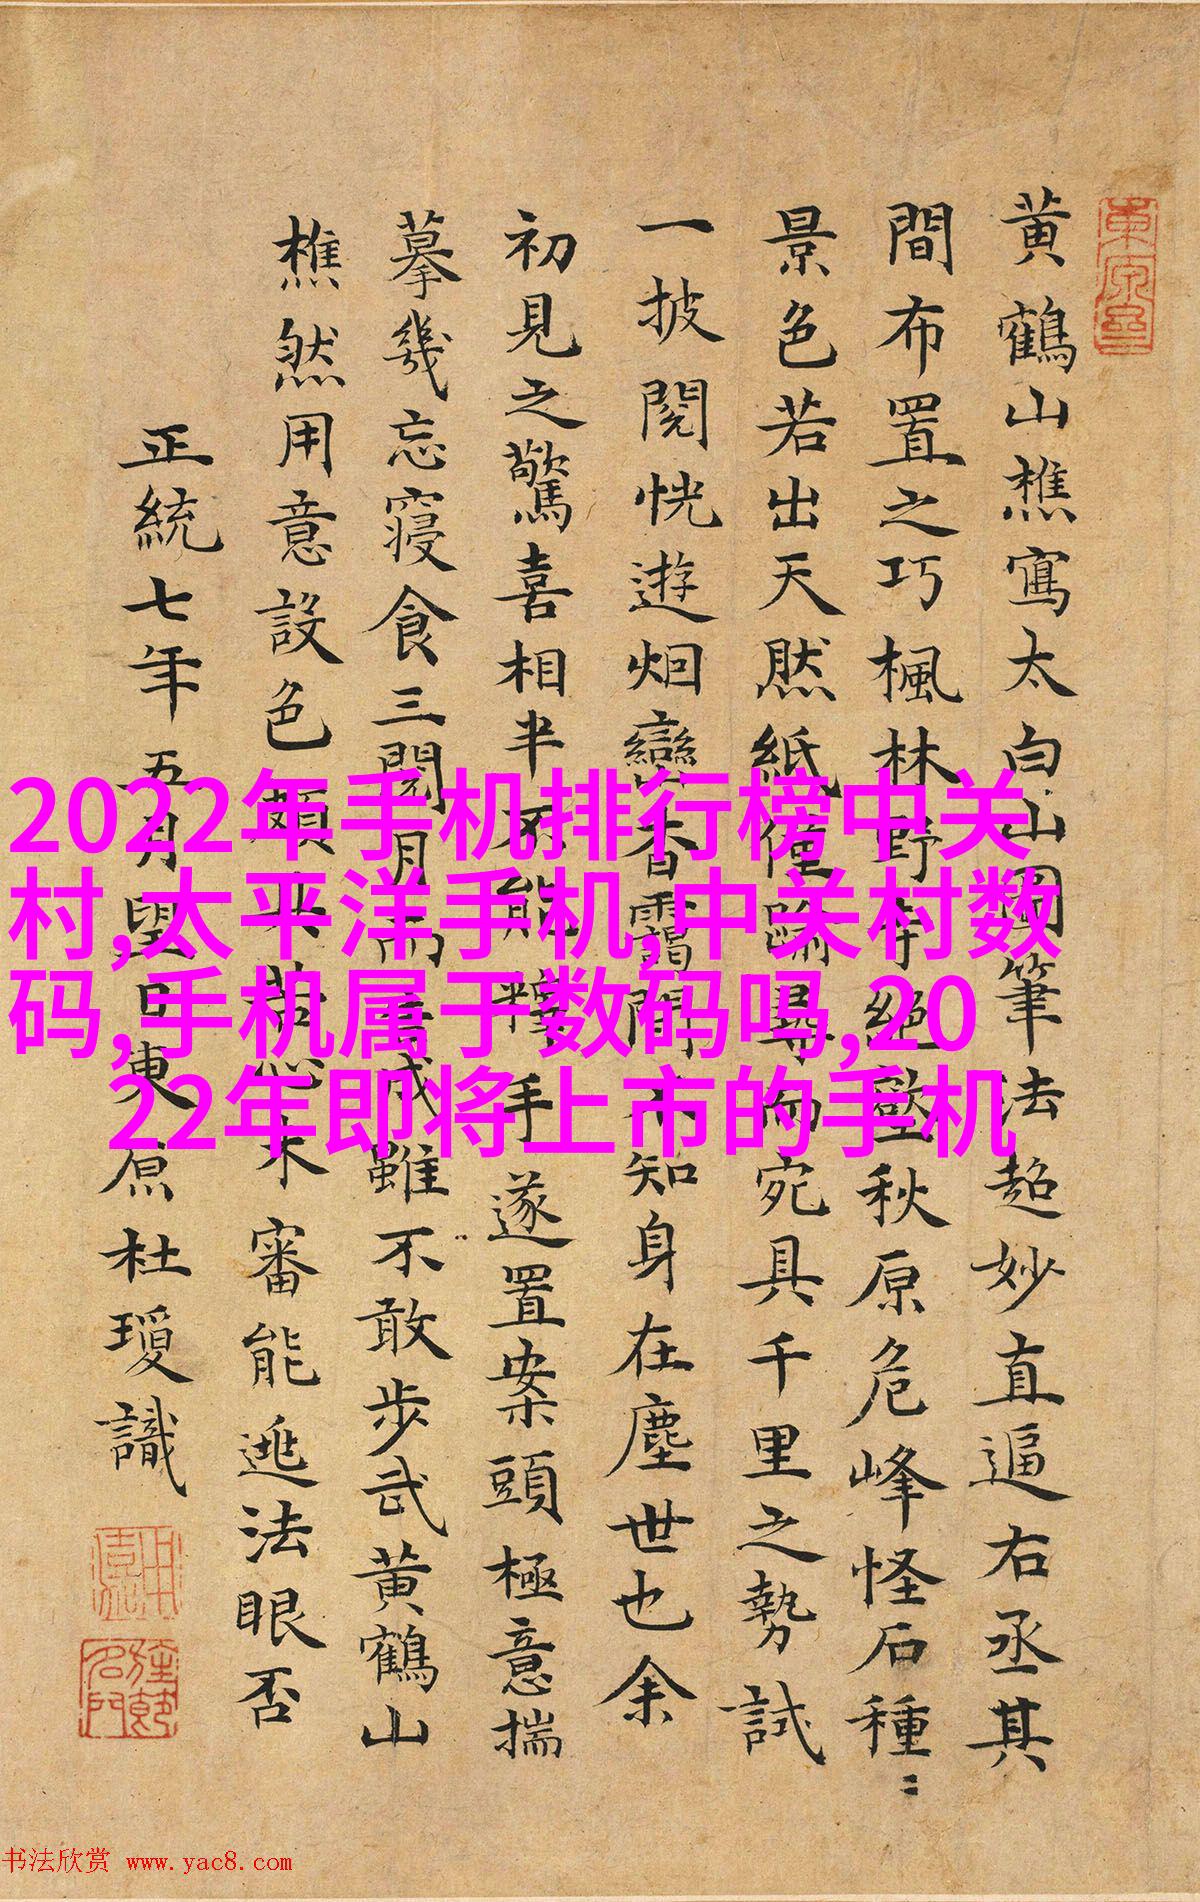 黄鶴山樵寫太白山圖筆法超妙直逼右丞其
間布置之巧楓林野寺絕壑秋原危峰怪石種〻
景色若出天然紙僅踰尋而宛具千里之勢試
一披閱恍遊烟巒香靄間不知身在塵世也余
初見之驚喜相半不能釋手遂置案頭極意揣
摹幾忘寢食三閱月而畫成雖不敢步武黄鶴山
樵然用意設色頗苦心未審能逃法眼否
正統七年五月望日東原杜瓊識
2022年手机排行榜中关
村,太平洋手机,中关村数
码,手机属于数码吗,20
22年即将上市的手机
书法欣赏 www.yac8.com